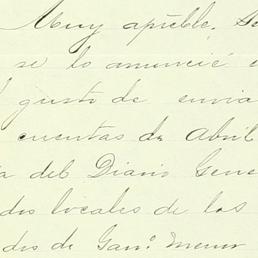 Muy apreble. Se
se lo anuncié
gusto de envia
cuentas de Abril
a del Diario Gene
dos locales de los
dos de Gano. menor